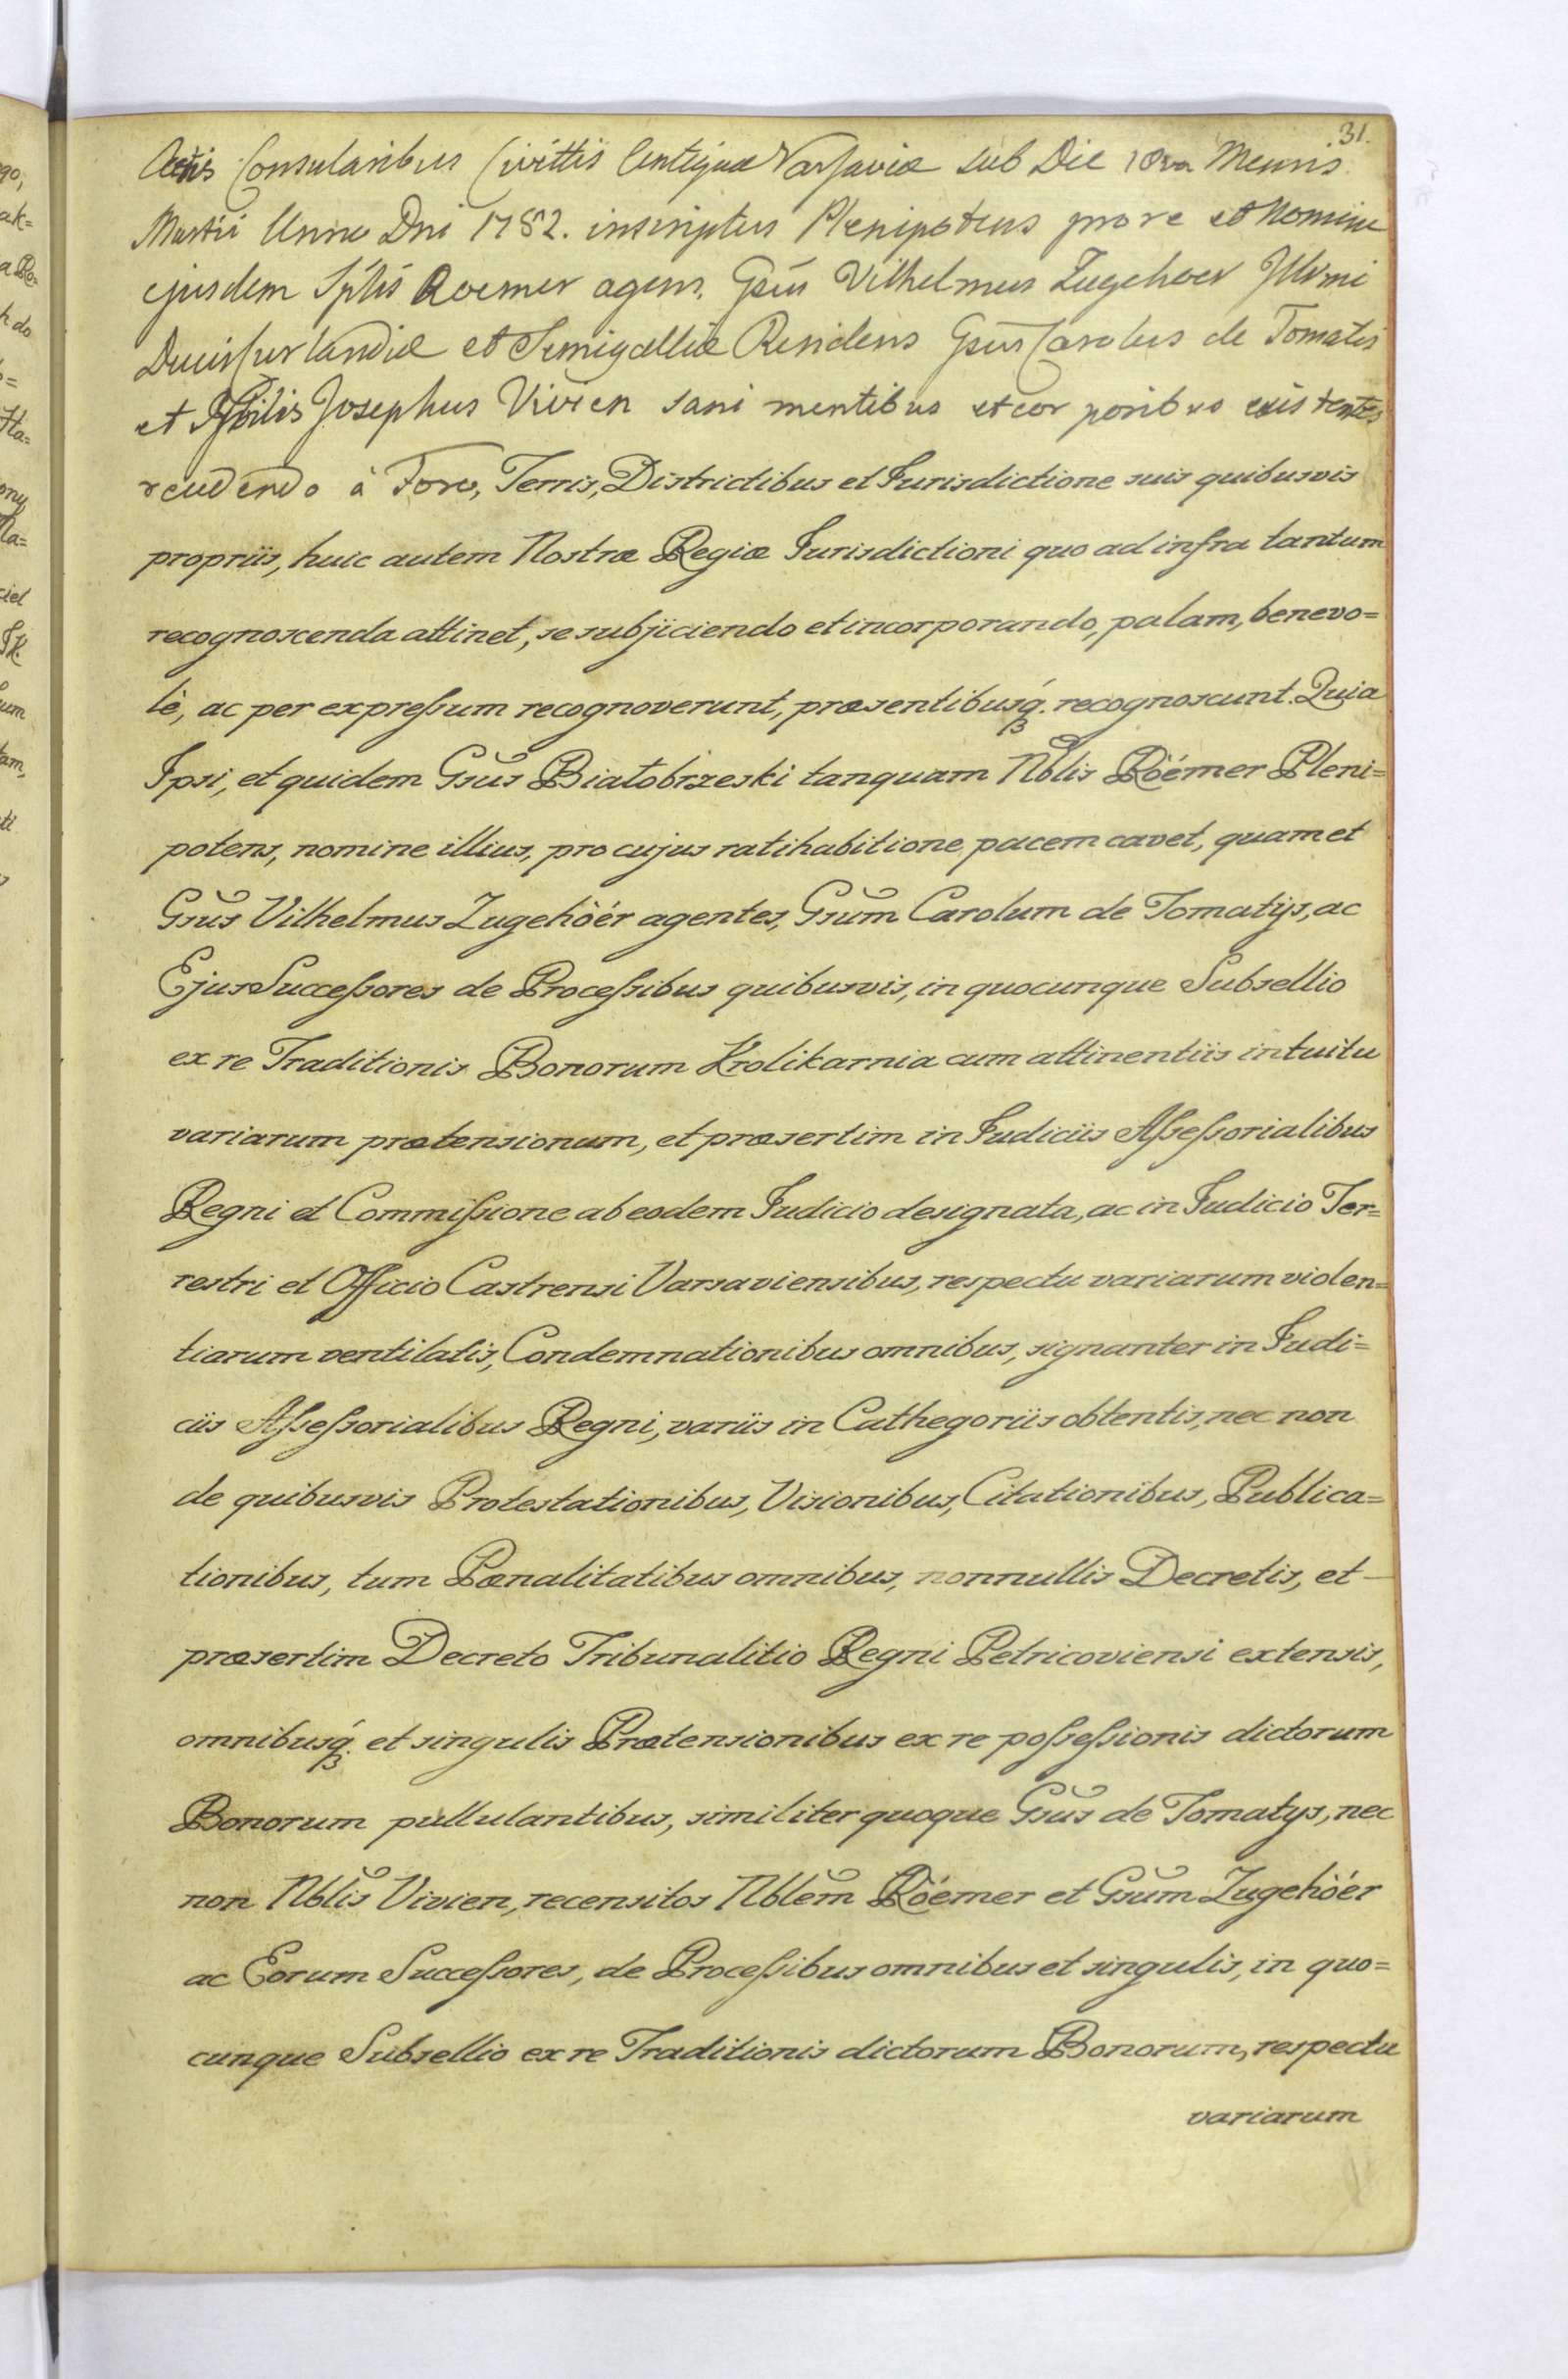 31.
Actis Consularibus Civittis Antiquæ Varsaviæ sub Die 10ma Mensis
Martii Anno Dni 1782. inscriptus Plenipotens pro re et Nomine
ejusdem Spblis Roemer agens. Gsus Vilhelmus Zugehoer Illrmi
Ducis Curlandiæ et Semigalliæ Residens Gsus Carolus de Tomatis
et Nbilis Josephus Vivien sani mentibus et cor poribus existentes
recedendo à Foro, Terris, Districtibus et Jurisdictione suis quibusvis
propriis, huic autem Nostræ Regiæ Jurisdictioni quo ad infra tantum
recognoscenda attinet, se subjiciendo et incorporando, palam, benevo=
lè, ac per expressum recognoverunt, præsentibusq́. recognoscunt. Quia
Ipsi, et quidem Gsus Białobrzeski tanquam Nblis Röémer Pleni=
potens, nomine illius, pro cujus ratihabitione pacem cavet, quam et
Gsus Vilhelmus Zugehöér agentes, Gsum Carolum de Tomatys, ac
Ejus Successores de Processibus quibusvis, in quocunque Subsellio
ex re Traditionis Bonorum Krolikarnia cum attinentiis intuitu
variarum prætensionum, et præsertim in Judiciis Assessorialibus
Regni et Commissione ab eodem Judicio designata, ac in Judicio Ter=
restri et Officio Castrensi Varsaviensibus, respectu variarum violen=
tiarum ventilatis, Condemnationibus omnibus, signanter in Judi=
ciis Assessorialibus Regni, variis in Cathegoriis obtentis, nec non
de quibusvis Protestationibus, Visionibus, Citationibus, Publica=
tionibus, tum Pænalitatibus omnibus, nonnullis Decretis, et
præsertim Decreto Tribunalitio Regni Petricoviensi extensis,
omnibusq́. et singulis Prætensionibus ex re possessionis dictorum
Bonorum pullulantibus, similiter quoque Gsus de Tomatys, nec
non Nblis Vivien, recensitos Nblem Röémer et Gsum Zugehöér
ac Eorum Successores, de Processibus omnibus et singulis, in quo=
cunque Subsellio ex re Traditionis dictorum Bonorum, respectu
variarum